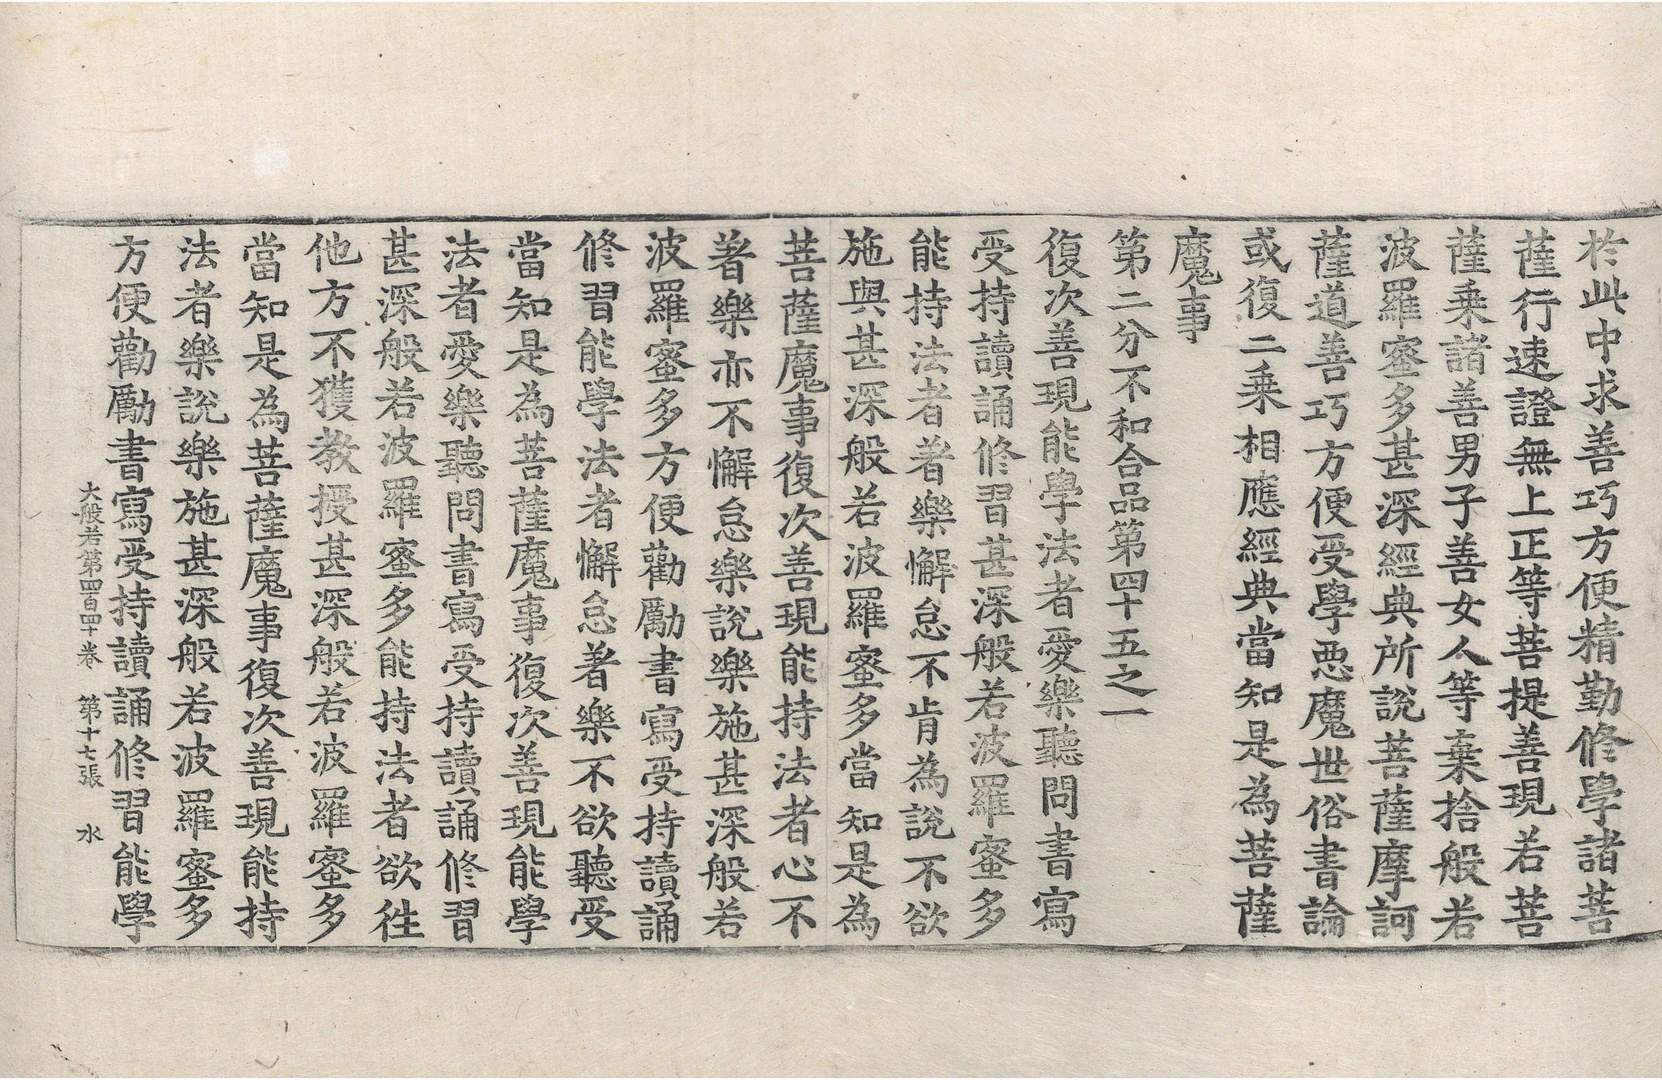 於此中求善巧方便精勤修學諸菩
薩行速證無上正等菩提善現若菩
薩乘諸善男子善女人等棄捨般若
波羅蜜多甚深經典所說菩薩摩訶
薩道善巧方便受學惡魔世俗書論
或復二乘相應經典當知是為菩薩
魔事
第二分不和合品第四十五之一
復次善現能學法者愛樂聽問書寫
受持讀誦修習甚深般若波羅蜜多
能持法者著樂懈怠不肯為說不欲
施與甚深般若波羅蜜多當知是為
菩薩魔事復次善現能持法者心不
著樂亦不懈怠樂說樂施甚深般若
波羅蜜多方便勸勵書寫受持讀誦
修習能學法者懈怠著樂不欲聽受
當知是為菩薩魔事復次善現能學
法者愛樂聽問書寫受持讀誦修習
甚深般若波羅蜜多能持法者欲往
他方不獲教授甚深般若波羅蜜多
當知是為菩薩魔事復次善現能持
法者樂說樂施甚深般若波羅蜜多
方便勸勵書寫受持讀誦修習能學
大般若第四百四十卷 第十七張 水